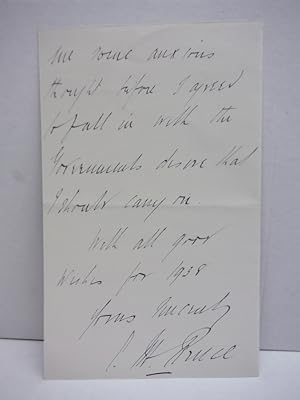 me some anxious
thought before I agreed
to fall in with the
Governments desire that
I should carry on.
With all good
wishes for 1938
Yours sincerely
S. M. Bruce